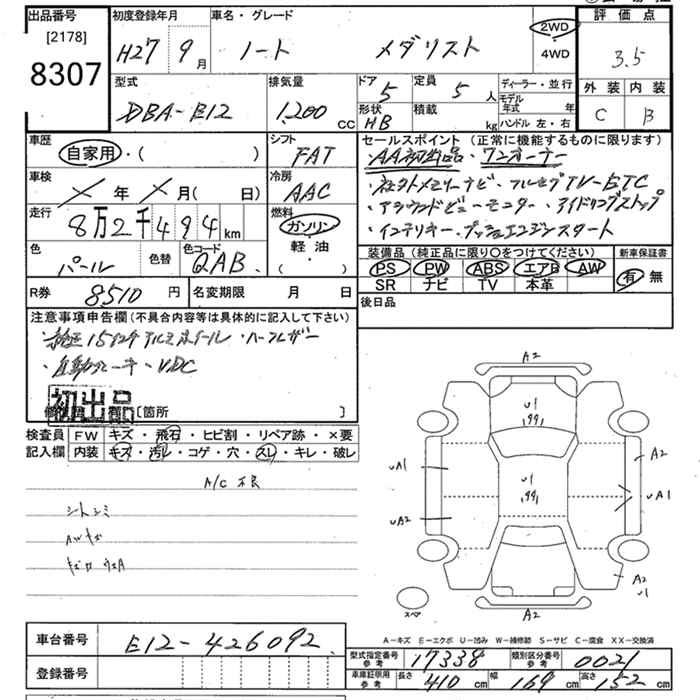 出品番号
[2178]
8307
初度登録年月
H27 9月
車名・グレード
ノート メダリスト
2WD
4WD
評価点
3.5
外装 内装
C B
型式
DBA-E12
排気量
1,200 CC
ドア
5
形状
HB
定員
5 人
積載
kg
ディーラー・並行
モデル年式 年
ハンドル 左・右
車歴
自家用・( )
シフト
FAT
車検
年 月(日)
冷房
AAC
走行
8万2千494km
燃料
ガソリン
軽油
・( )
色
パール
色替
色コード
QAB
セールスポイント (正常に機能するものに限ります)
AA初出品・ワンオーナー
・社外メモリーナビ・フルセグTV-ETC
・アラウンドビューモニター・アイドリングストップ
・インテリキー・プッシュエンジンスタート
装備品 (純正品に限り〇をつけてください)
PS PW ABS エアB AW
SR ナビ TV 本革
新車保証書
有 無
R券 8510 円
名変期限 月 日
後日品
注意事項申告欄(不具合内容等は具体的に記入して下さい)
・純正15インチアルミホイール・ハーフレザー
・自動ブレーキ・VDC
初出品
[箇所 ]
検査員記入欄
FW キズ・飛石・ヒビ割・リペア跡・×要
内装 キズ・汚レ・コゲ・穴・スレ・キレ・破レ
A/C 不良
シートシミ
AWキズ
A2
U1
,99,
U1
,99,
UA1
UA2
A2
UA1
A2
U1
A2
スペア
A-キズ E-エクボ U-凹み W-補修跡 S-サビ C-腐食 XX-交換済
車台番号 E12-426092
登録番号
型式指定番号 参考 17338
類別区分番号 参考 0021
車庫証明用 参考 長さ 410 cm 幅 169 cm 高さ 152 cm